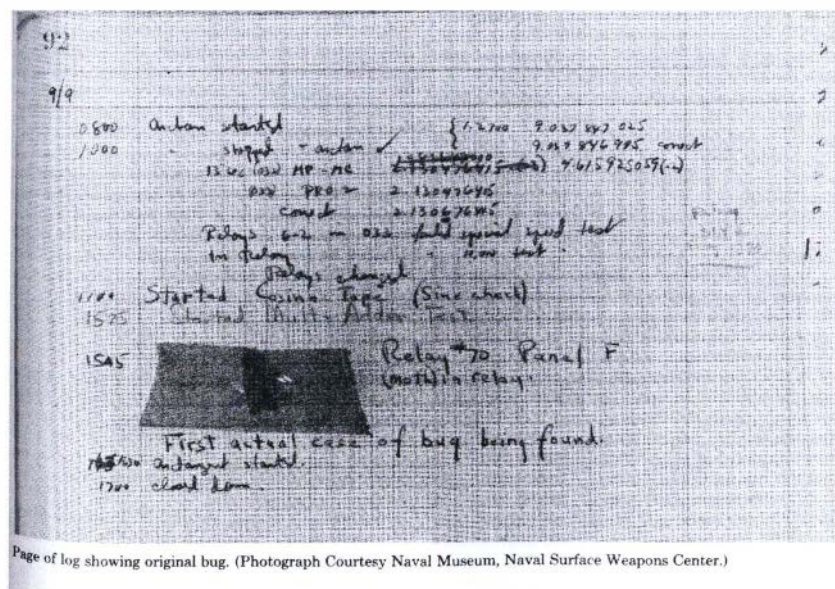 92
9/9
0800 Antan started
1000 " stopped - antan ✓ { 1.2700 9.037 847 025
9.037 846 995 correct
13"uc (032) MP - MC 2.130476415 4.615925059(-2)
033 PRO 2 2.130476415
correct 2.130676415
Relays 6-2 in 033 failed special speed test
in relay " 11,000 test.
Relays changed
1100 Started Cosine Tape (Sine check)
1525 Started Multi Adder Test.
1545 Relay #70 Panel F
(moth) in relay.
First actual case of bug being found.
1630 antangent started.
1700 closed down.
Page of log showing original bug. (Photograph Courtesy Naval Museum, Naval Surface Weapons Center.)